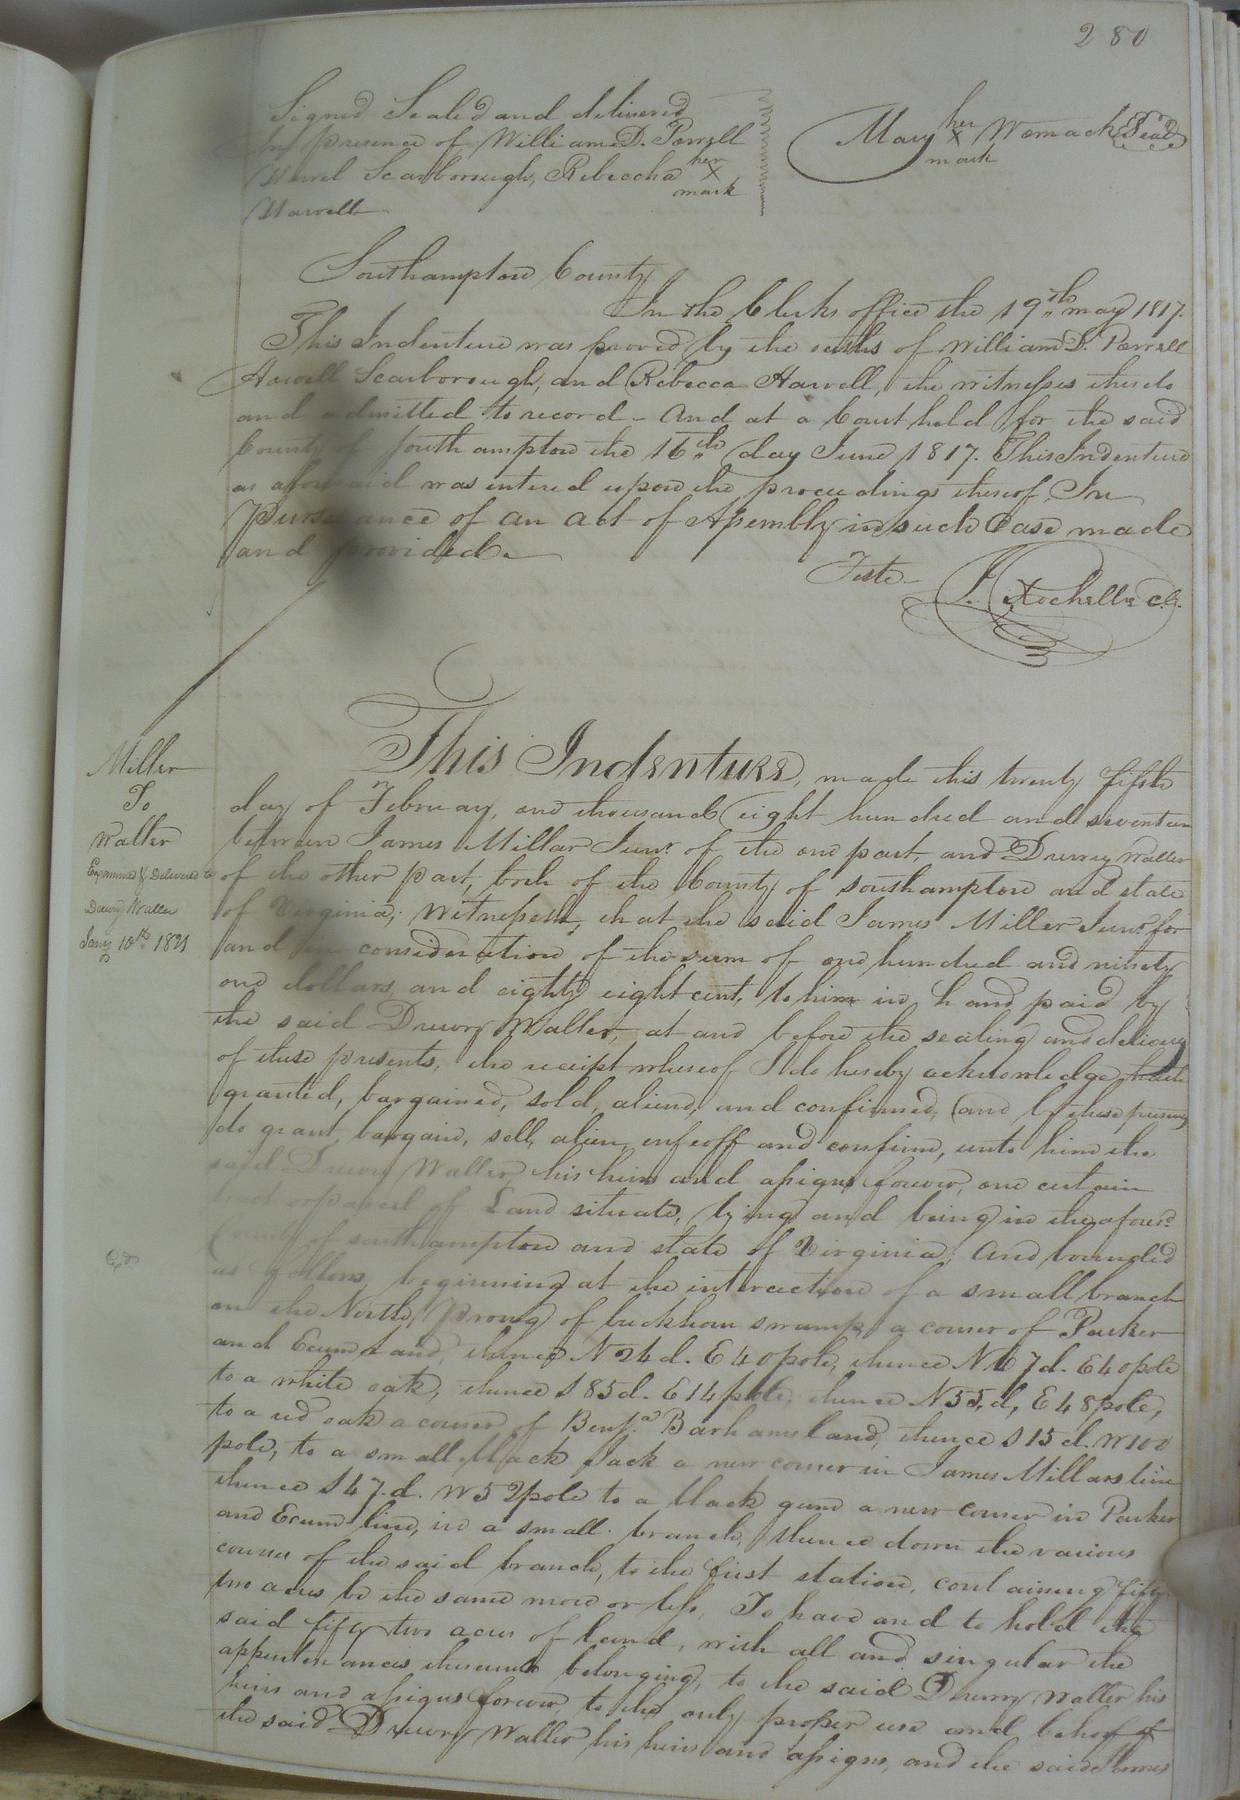 280
Signed Sealed and delivered
In presence of William D. Powell
Howel Scarborough, Rebeccha her X mark
Harvell
Mary her X mark Womack Seal
Southampton County
In the Clerks office the 19th may 1817.
This Indenture was proved by the oaths of William D. Powell
Howell Scarborough, and Rebecca Harvell, the witnesses thereto
and admitted to record - And at a Court held for the said
County of Southampton the 16th day June 1817. This Indenture
as aforesaid was entered upon the proceedings thereof In
Pursuance of an act of Assembly in such Case made
and provided.
Teste - J. Rochelle Clk.
Miller
To
Waller
Examined & Delivered to
Drewry Waller
Jany 10th 1821
This Indenture, made this twenty fifth
day of February, one thousand eight hundred and seventeen
between James Millar Junr of the one part, and Drewry Waller
of the other part, both of the County of Southampton and state
of Virginia; Witnesseth, that the said James Miller Junr for
and in consideration of the sum of one hundred and ninety
one dollars and eighty eight cent, to him in hand paid by
the said Drewry Waller, at and before the sealing and delivery
of these presents, the receipt whereof I do hereby acknowledge, hath
granted, bargained, sold, aliend, and confirmed, and by these presents
do grant, bargain, sell, alien, enfeoff and confirm, unto him the
said Drewry Waller, his heirs and assigns forever, one certain
tract or parcel of Land situate, lying and being in the aforesd
County of southampton and state of Virginia; And bounded
as follows, beginning at the interection of a small branch
on the North, Prong of buckhorn swamp, a corner of Parker
and Ecum land, thence N 24 d. E 40 pole, thence N 67 d. E 40 pole
to a white oak, thence S 85 d. E 14 pole, thence N 55, d, E 48 pole,
to a red oak a corner of Benja Barhams land, thence S 15 d. W 100
pole, to a small black Jack a new corner in James Millars line
thence S 47. d. W 52 pole to a black gum a new corner in Parker
and Ecum line, in a small branch, thence down the various
courses of the said branch, to the first station, containing fifty
two acres be the same more or less, To have and to hold the
said fifty two acres of land, with all and singular the
appurtenances thereunto belonging, to the said Drewry Waller his
heirs and assigns forever, to the only proper use and behoof of
the said Drewry Waller his heirs and assigns, and the said James